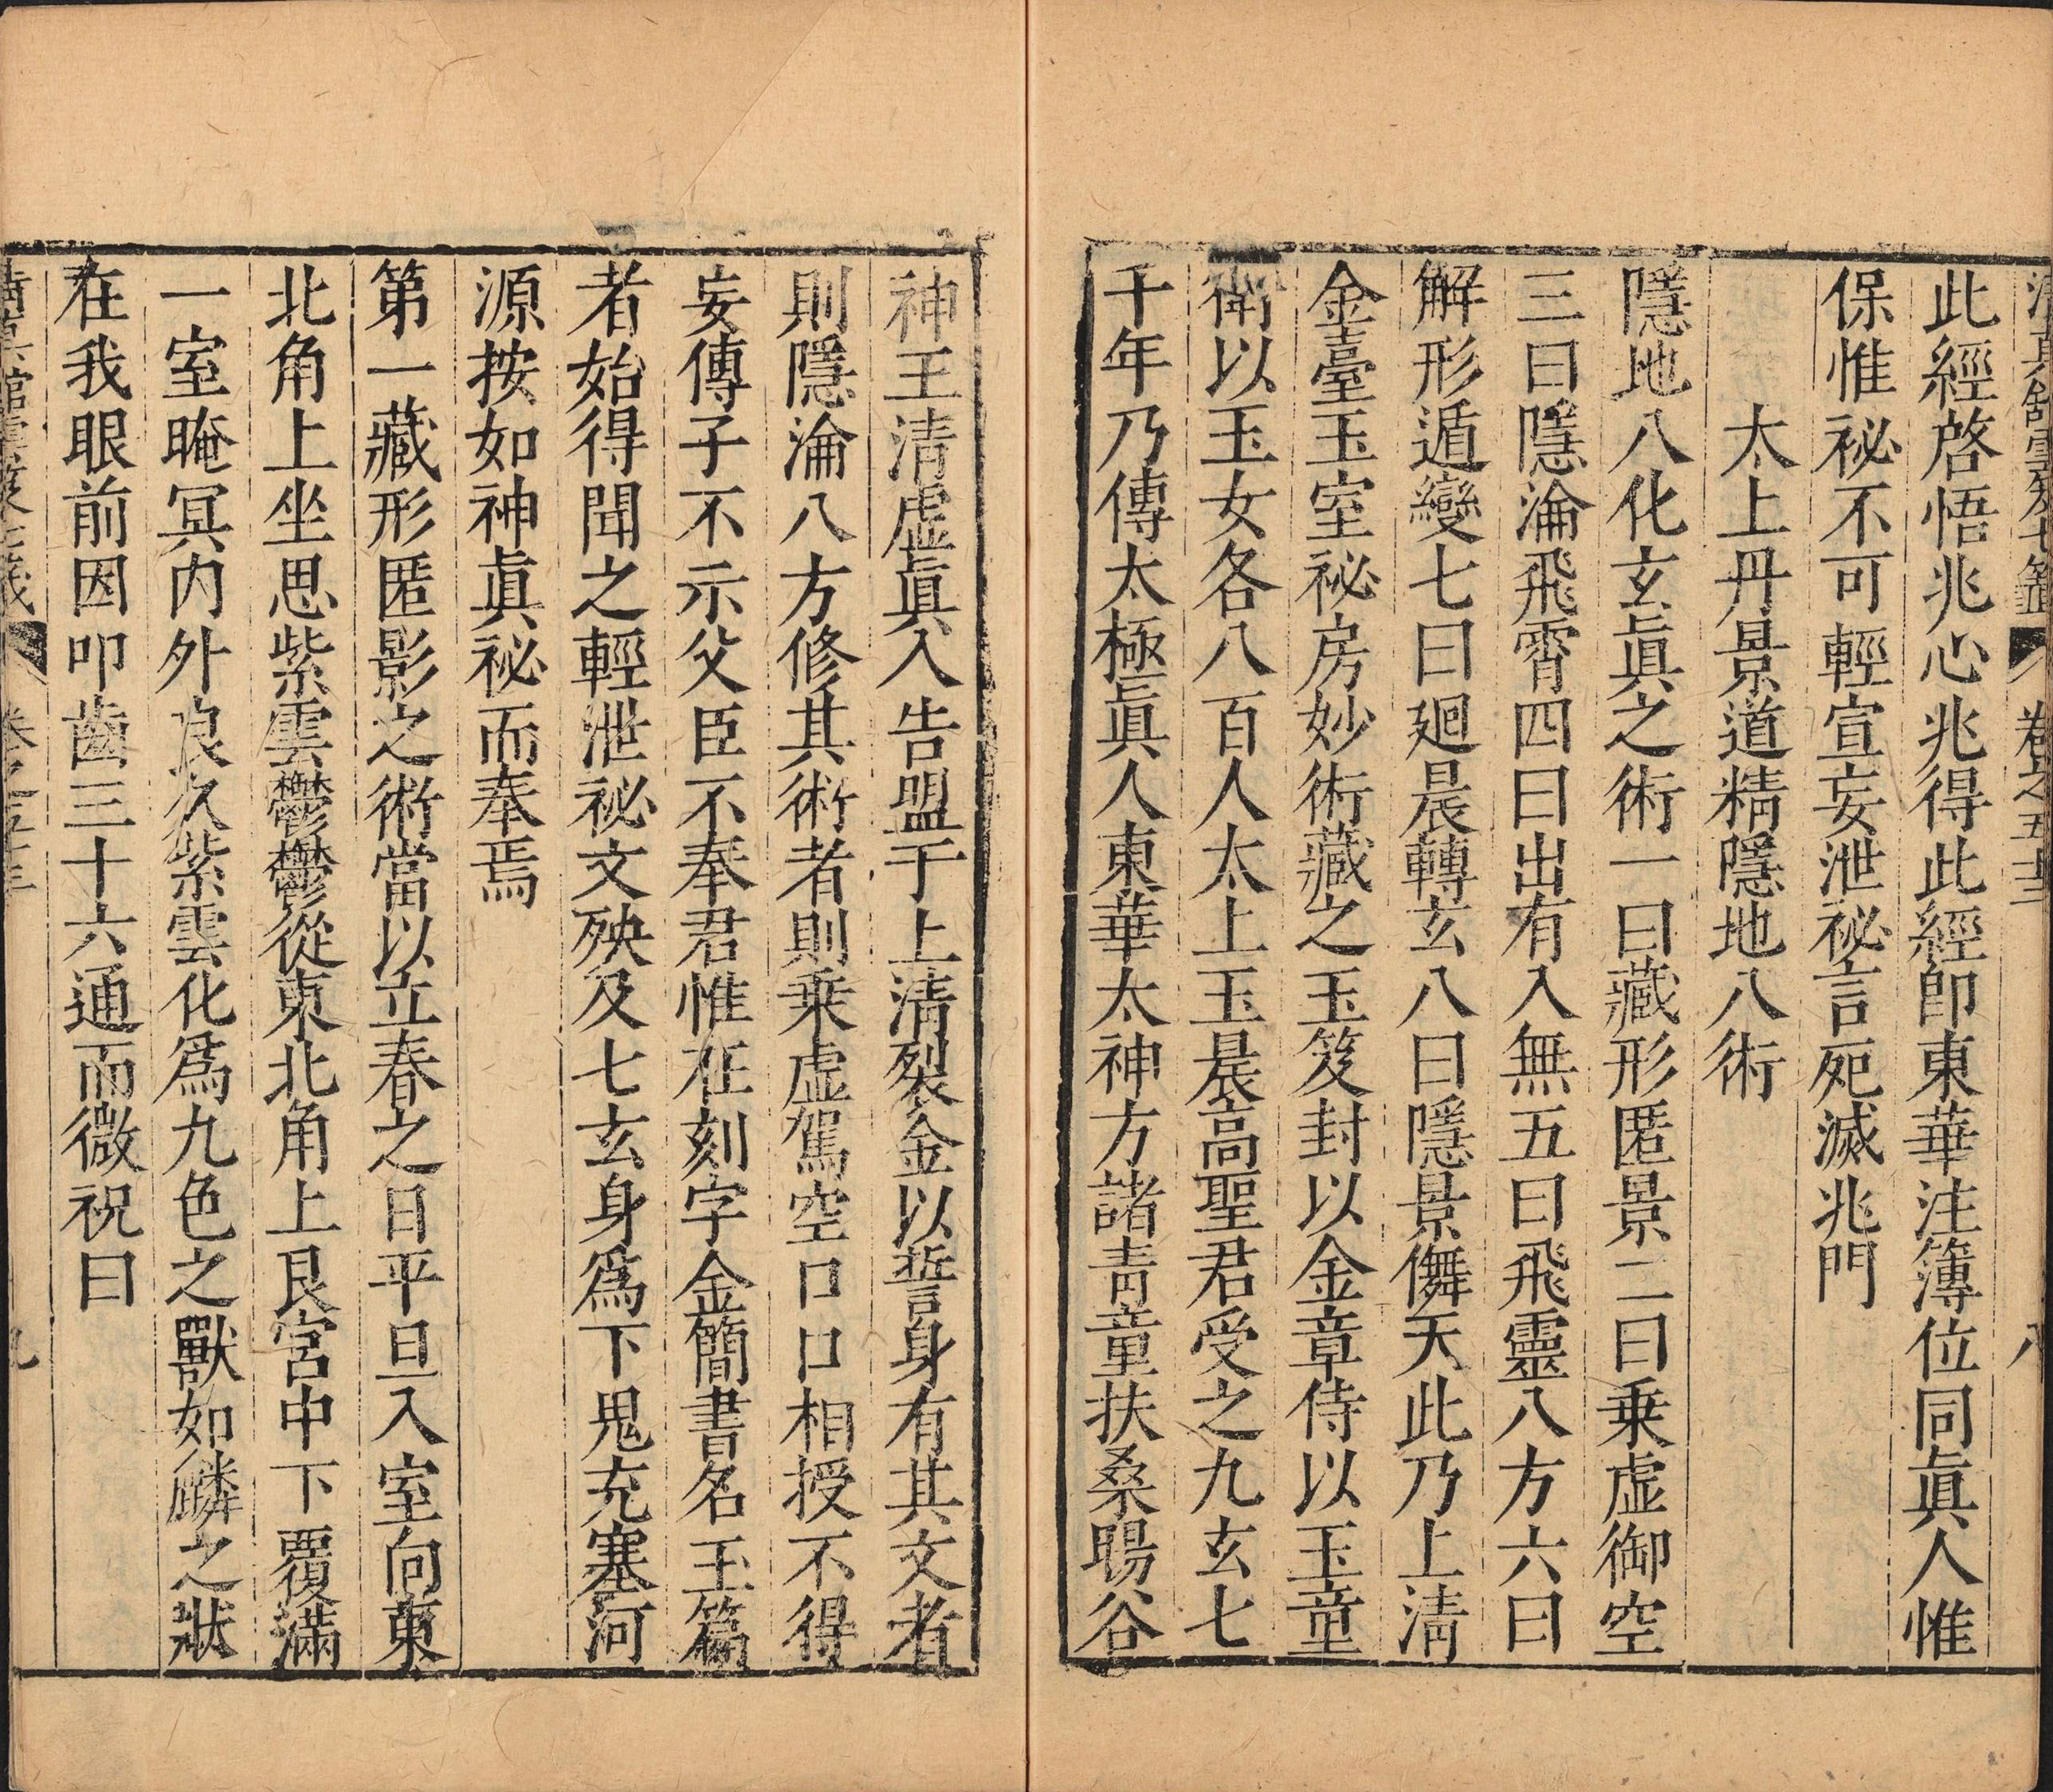 清真館雲笈七籤 卷之五十三 八
此經啓悟兆心兆得此經卽東華注簿位同眞人惟
保惟祕不可輕宣妄泄祕言死滅兆門
太上丹景道精隱地八術
隱地八化玄眞之術一曰藏形匿景二曰乗虛御空
三曰隱淪飛霄四曰出有入無五曰飛靈八方六曰
解形遁變七曰廻晨轉玄八曰隱景儛天此乃上淸
金臺玉室祕房妙術藏之玉笈封以金章侍以玉童
衛以玉女各八百人太上玉晨高聖君受之九玄七
千年乃傳太極眞人東華太神方諸靑童扶桑暘谷
神王清虛眞人告盟于上淸裂金以誓身有其文者
則隱淪八方修其術者則乗虛駕空口口相授不得
妄傳子不示父臣不奉君惟在刻字金簡書名玉篇
者始得聞之輕泄祕文殃及七玄身爲下鬼充塞河
源按如神眞祕而奉焉
第一藏形匿影之術當以立春之日平旦入室向東
北角上坐思紫雲鬱鬱從東北角上艮宮中下覆滿
一室晻冥內外良久紫雲化爲九色之獸如麟之狀
在我眼前因叩齒三十六通而微祝曰
清眞館雲笈七籤 卷之五十三 九